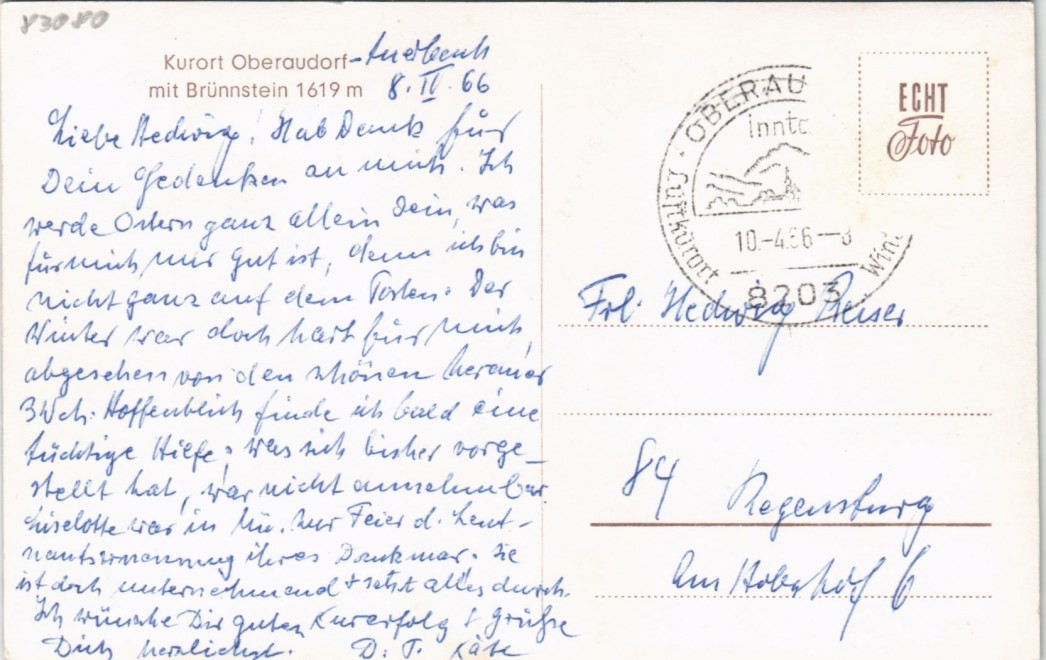 83080
Kurort Oberaudorf - Auerbach
mit Brünnstein 1619 m 8. IV. 66
Liebe Hedwig! Hab Dank für
Dein Gedenken an mich. Ich
werde Ostern ganz allein sein, was
für mich nur gut ist, denn ich bin
nicht ganz auf dem Posten. Der
Winter war doch hart für mich,
abgesehen von den schönen Meraner
3 Wch. Hoffentlich finde ich bald eine
tüchtige Hilfe, was sich bisher vorge-
stellt hat, war nicht annehmbar.
Liselotte war in Mü. zur Feier d. Leut-
nantsernennung ihres Dankmar. Sie
ist doch unternehmend + setzt alles durch.
Ich wünsche Dir guten Kurerfolg + grüße
Dich herzlichst. D. T. Käte
OBERAU
Inntal
Luftkurort
10.-4.66-8
Wint
8203
ECHT
Foto
Frl. Hedwig Reiser
84 Regensburg
Am Hobelhof 6